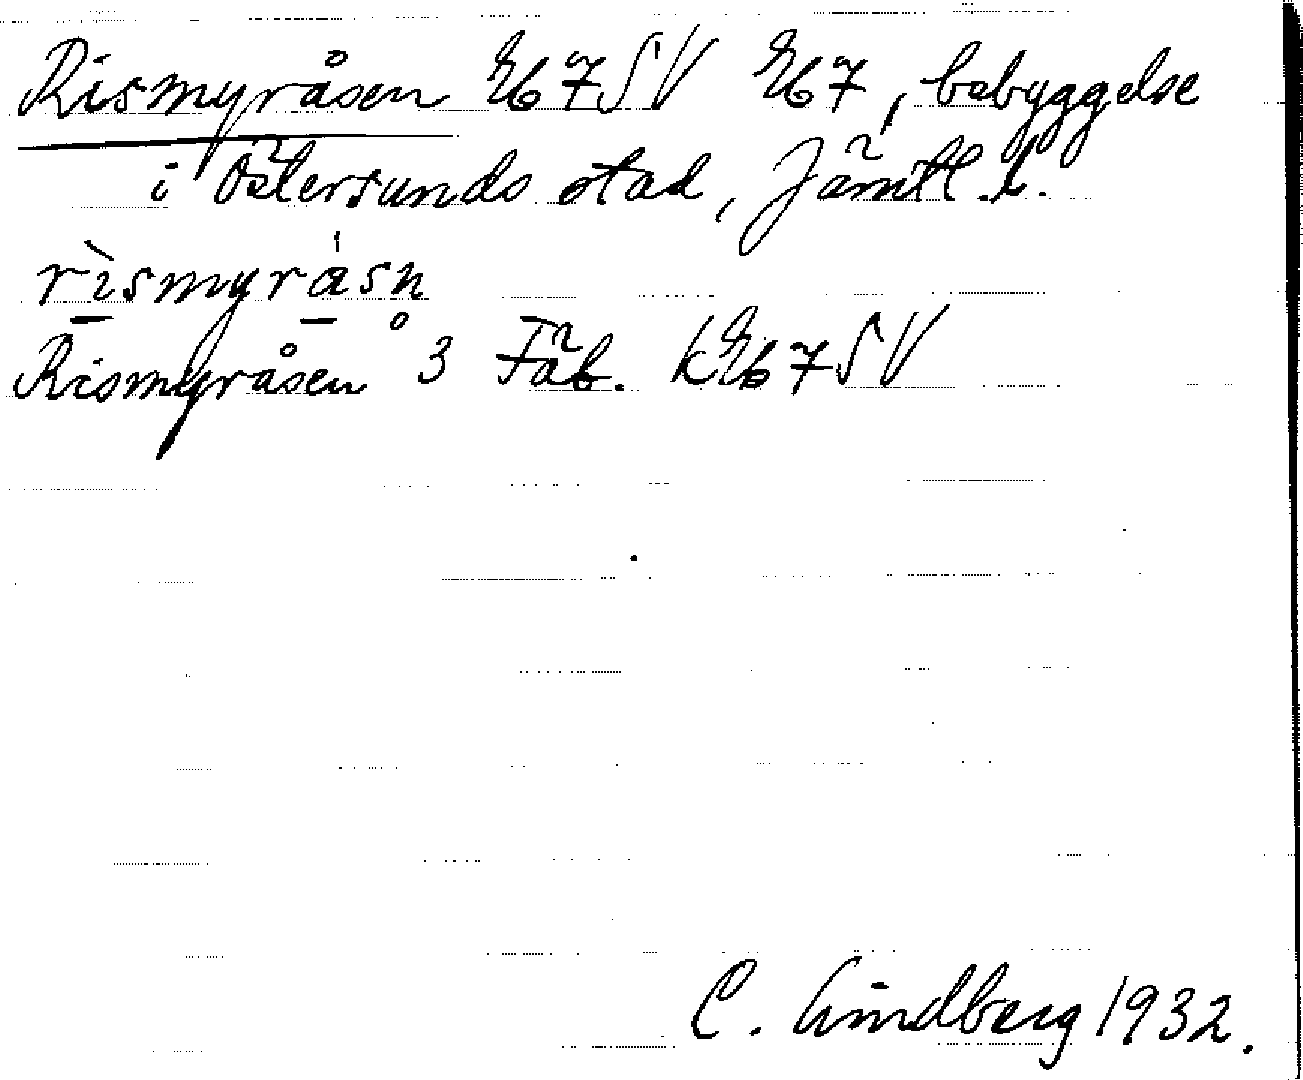 Rismyråsen Eb7SV Eb7, bebyggelse
i Östersunds stad, Jämtl. l.
rìsmyrásn̥
Rismyråsen 3 Fäb. kEb7SV
C. Lindberg 1932.